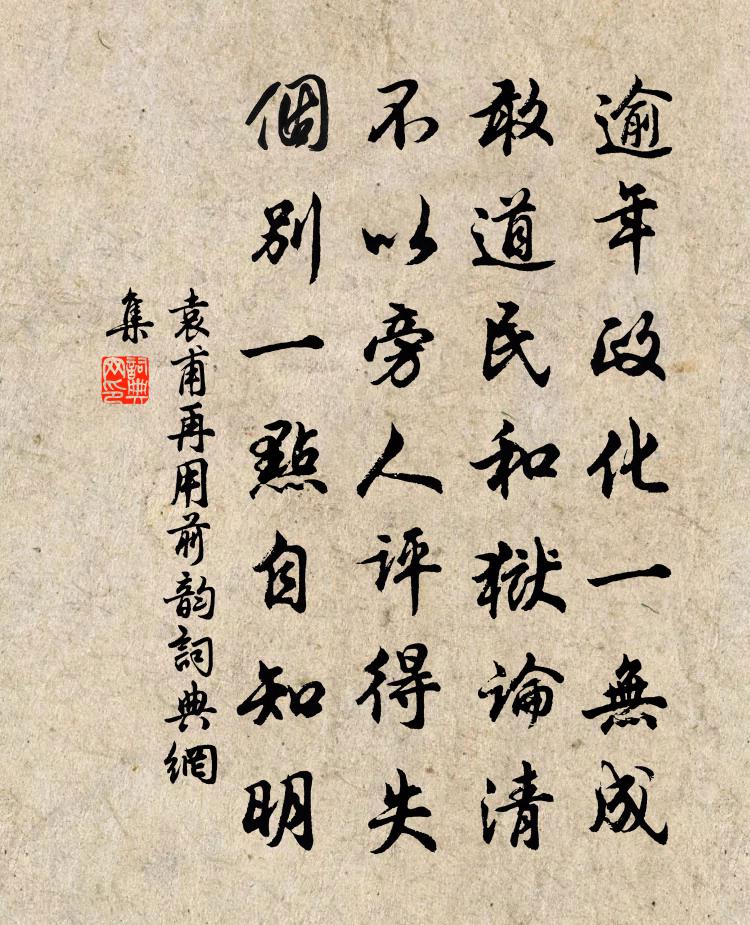 逾年政化一無成
敢道民和獄論清
不以旁人評得失
個別一點自知明
袁甫再用前韵詞典網
集
詞典網印